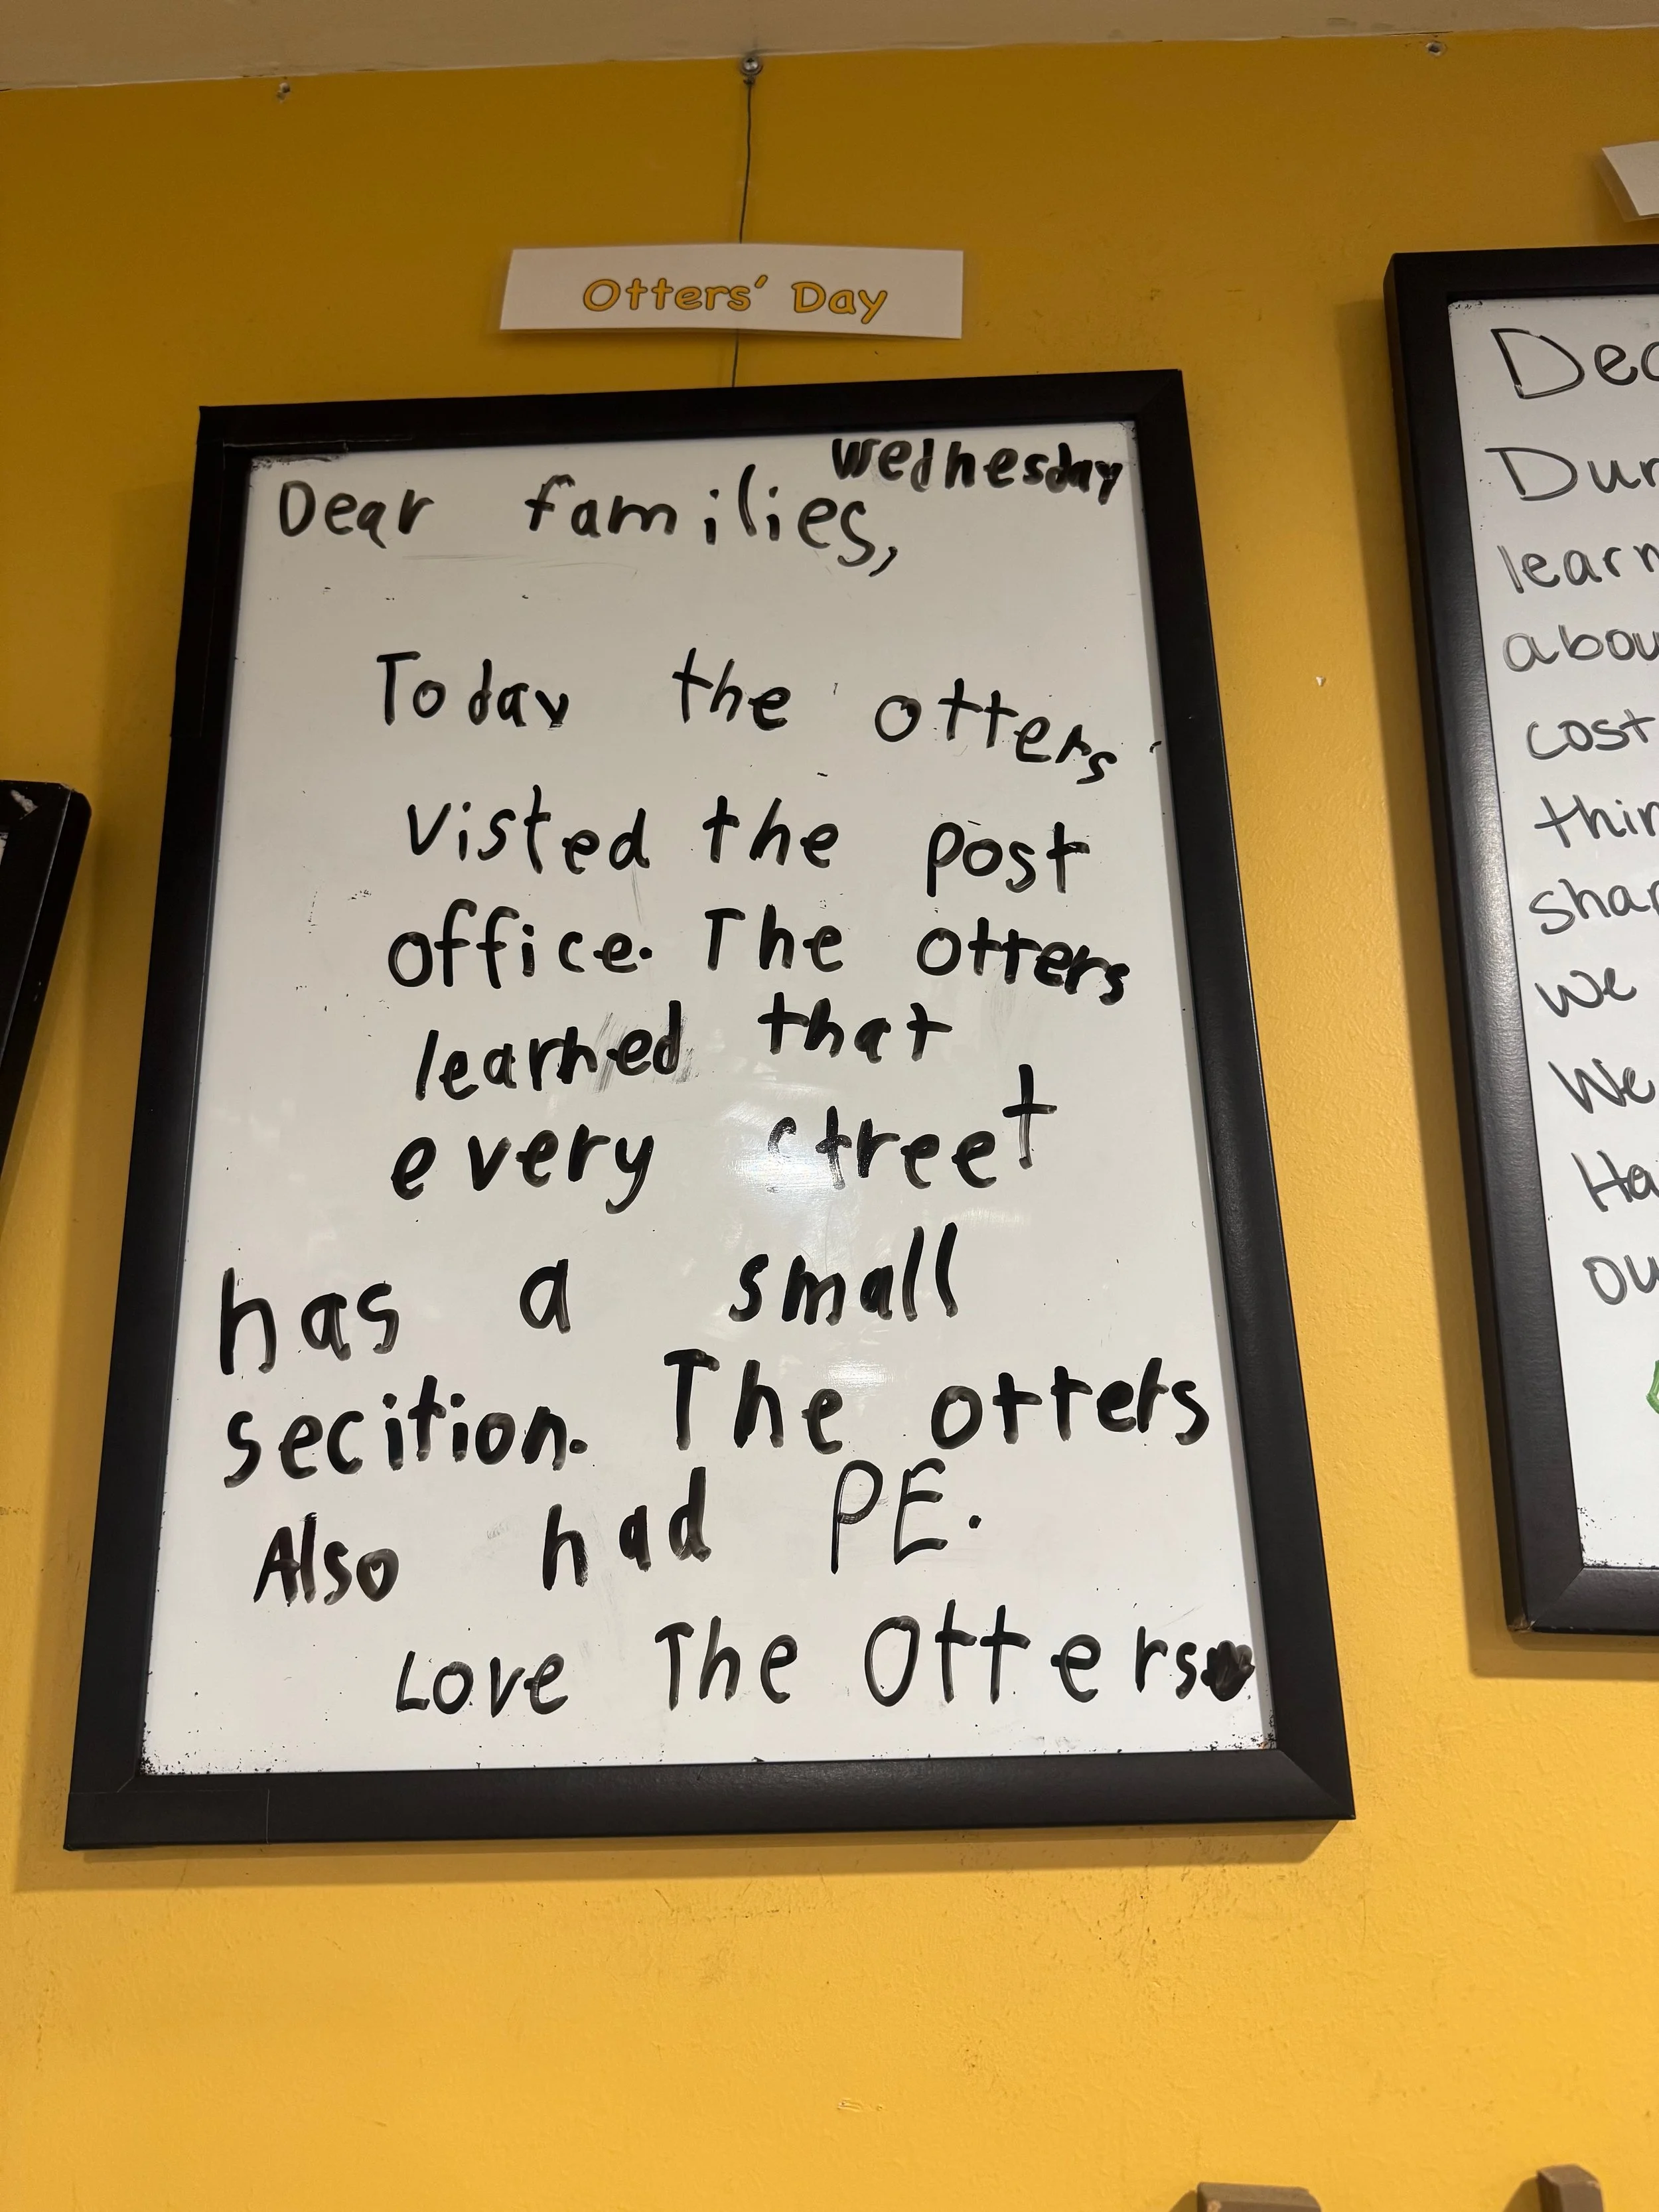 Otters' Day
Wednesday
Dear families,
Today the otters
visted the post
office. The otters
learned that
every street
has a small
secition. The otters
Also had PE.
Love The Otters
Dur
learn
abou
cost
thin
shar
we
We
Ha
ou